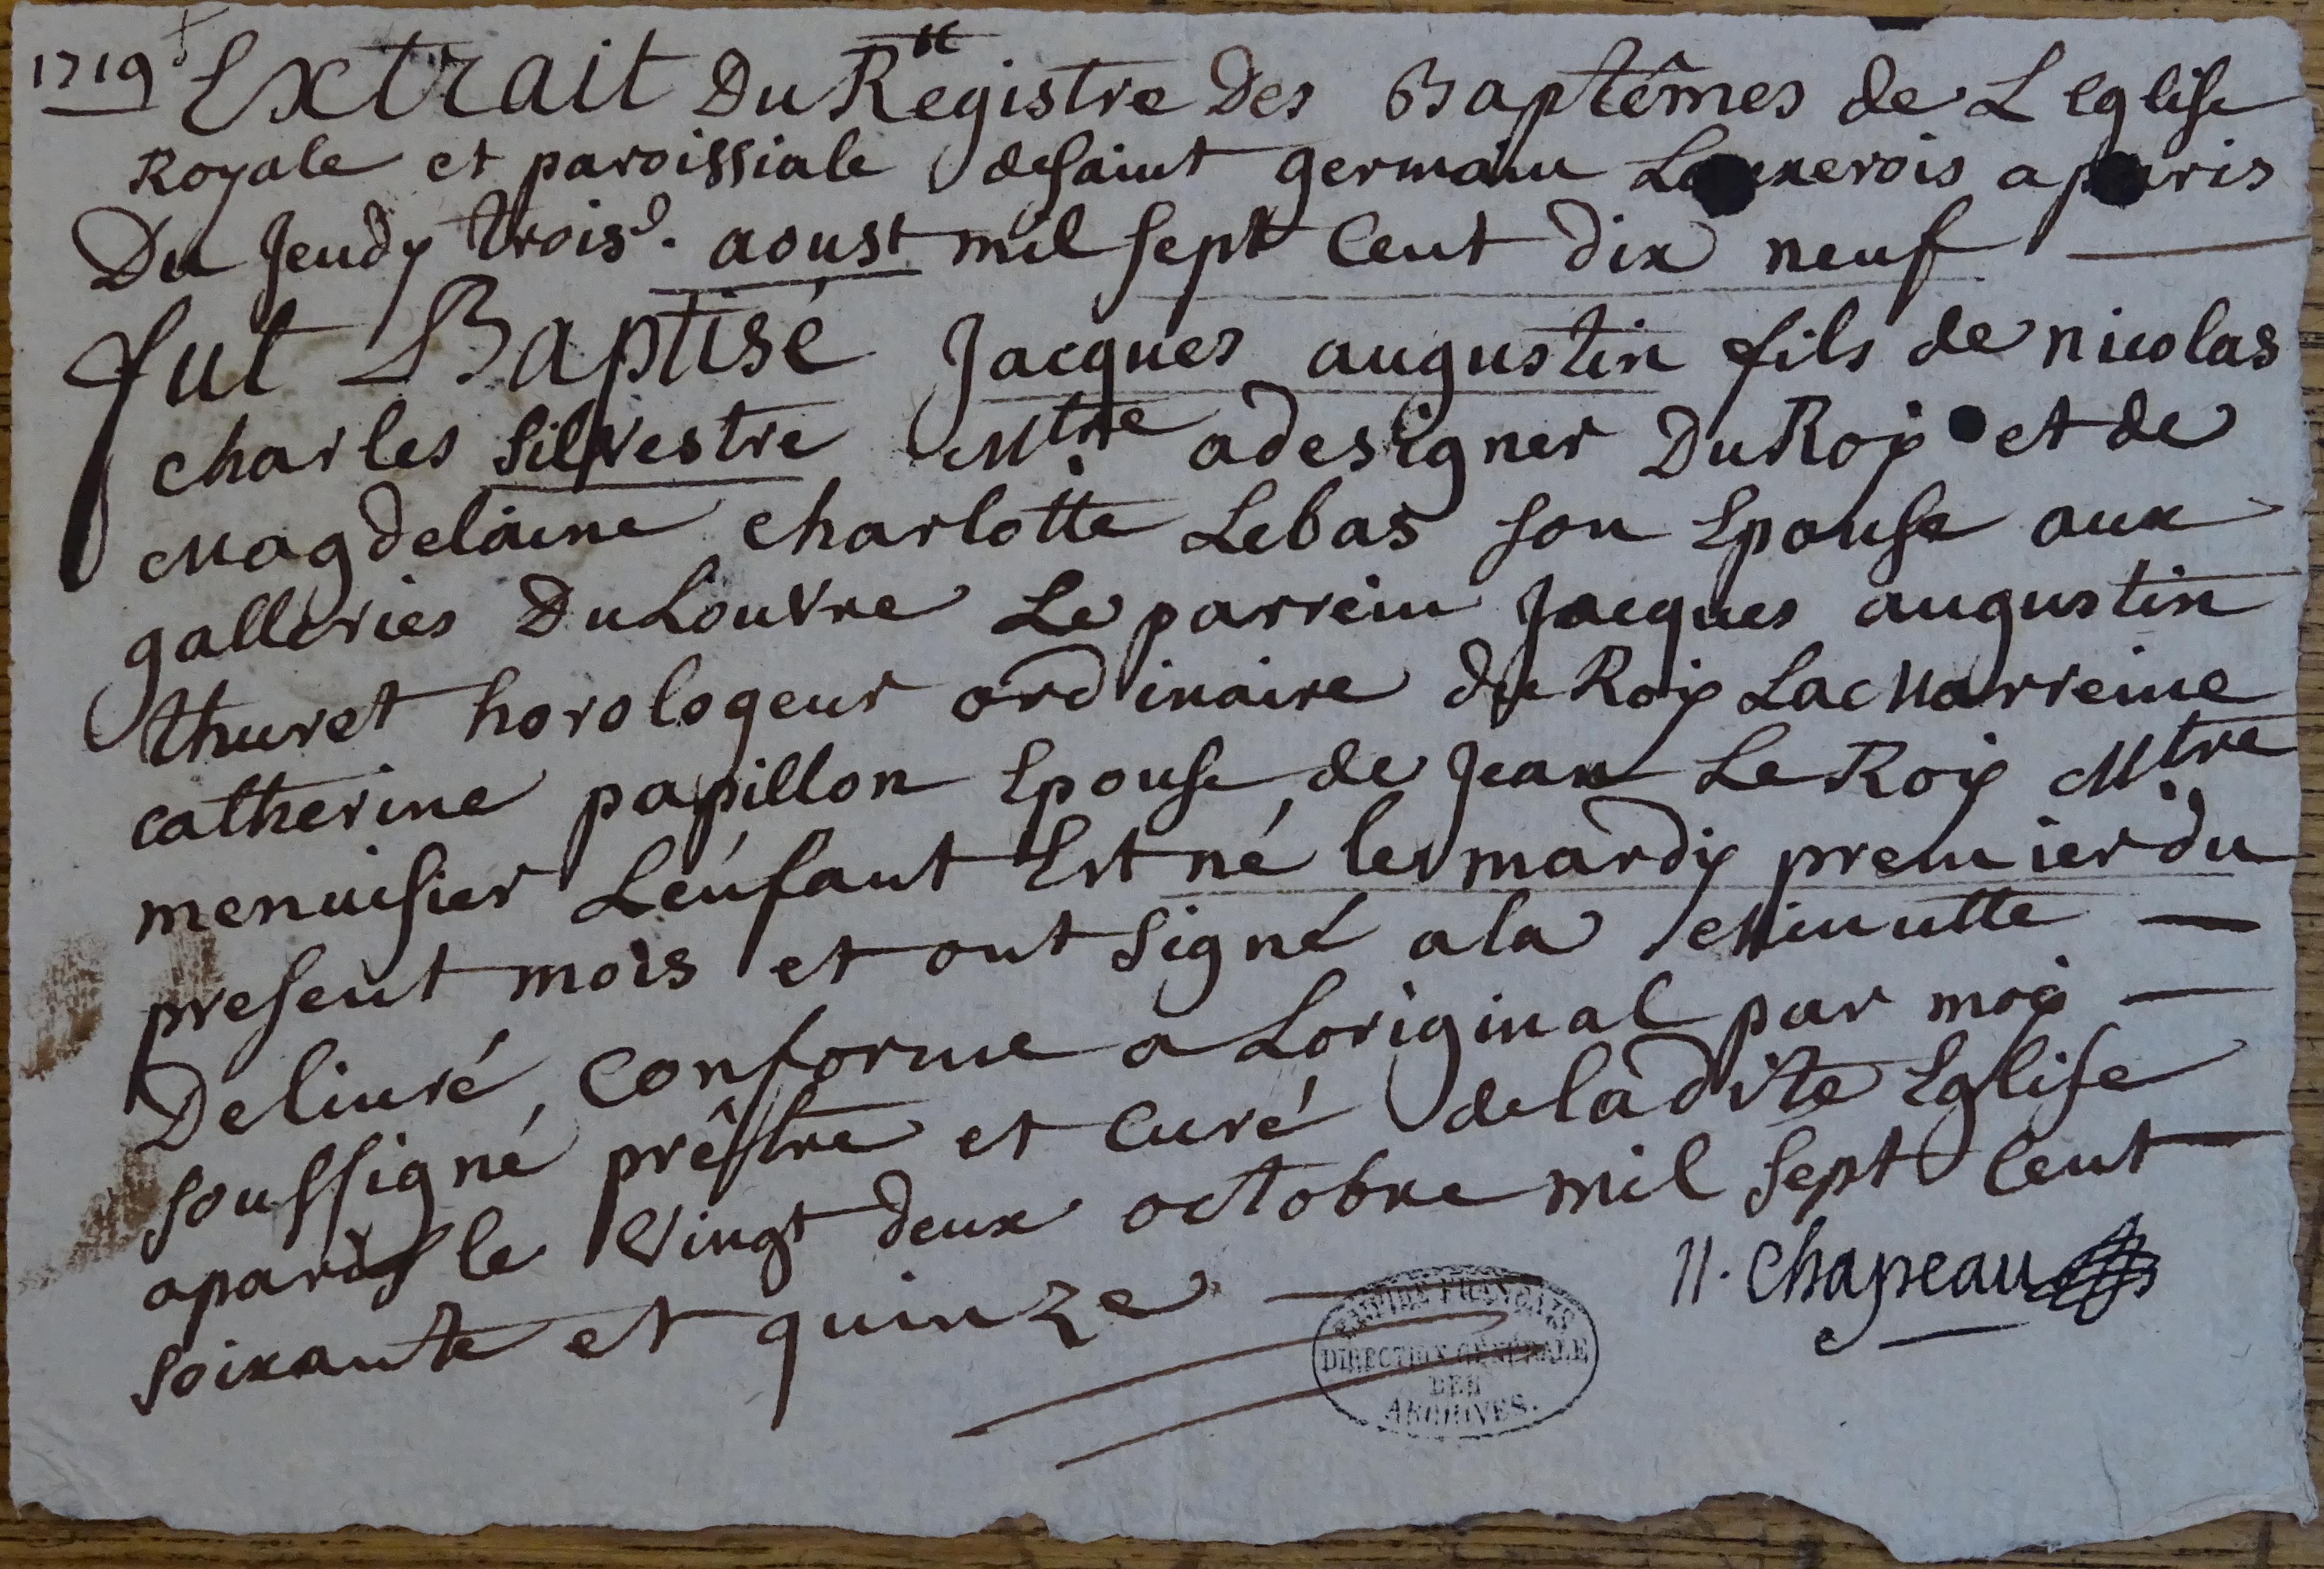 1719
Extrait Du Registre Des Baptêmes de L eglise
Royale et paroissiale desaint germain Lauxerois a paris
Du Jeudy trois. aoust mil sept Cent dix neuf
fut Baptisé Jacques augustin fils de nicolas
charles Silvestre Mtre adesigner Du Roy et de
Magdelaine charlotte Lebas son Epouse aux
galleries Du Louvre Le parrein Jacques augustin
thuret horologeur ordinaire du Roy La Marreine
catherine papillon Epouse de Jean Le Roy Mtre
menuisier L'enfant Est né le mardy premier du
present mois et ont signé a la Minutte
Delivré Conforme a Loriginal par moy
soussigné prêstre et Curé deladite Eglise
aparis le Vingt deux octobre mil sept Cent
soixante et quinze
Chapeau
EMPIRE FRANÇAIS
DIRECTION GÉNÉRALE
DES
ARCHIVES.